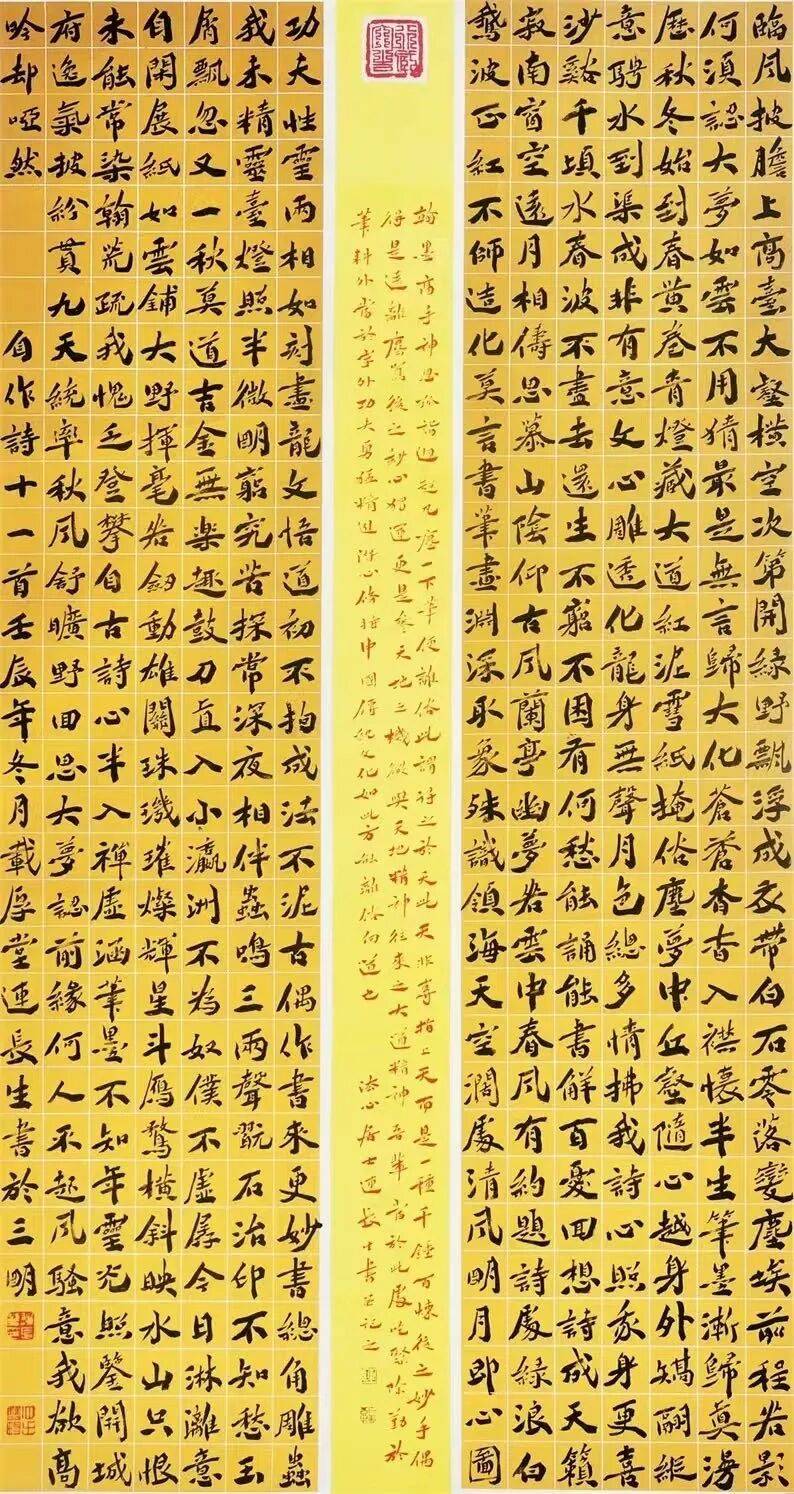 臨風披膽上高臺大壑橫空次第開綠野飄浮成衣帶白石零落變塵埃前程若影
何須認大夢如雲不用猜最是無言歸大化蒼蒼杳杳入襟懷半生筆墨漸歸真漫
歷秋冬始到春黃卷青燈藏大道紅泥雪紙掩俗塵夢中丘壑隨心越身外矯翮縱
意騁水到渠成非有意文心雕透化龍身無聲月色總多情拂我詩心照我身更喜
沙谿千頃水春波不盡去還生不窮不困有何愁能誦能書解百憂回想詩成天籟
寂南窗空遠月相儔思慕山陰仰古風蘭亭幽夢若雲中春風有約題詩處綠浪白
鵝波正紅不師造化莫言書筆畫淵深取象殊識領海天空闊處清風明月即心圖
翰墨高手神思所詣迥超凡塵一下筆便離俗此謂得之於天此天非專指上天而是一種千錘百煉後之妙手偶
得是遠離塵後之妙心獨運更是參天地之機微與天地精神往來之大道精神吾輩當於此處吃緊除勤於
筆耕外當於字外功夫勇猛精進洗心修持中國傳統文化如此方能離俗向道也 法心居士連長生書並記之
功夫性靈兩相如刻畫龍文悟道初不拘成法不泥古偶作書來更妙書總角雕蟲
我未精靈臺燈照半微明窮究苦探常深夜相伴蟲鳴三兩聲石治印不知愁玉
屑飄忽又一秋莫道吉金無樂趣鼓刀直入小瀛洲不為奴僕不虛孱今日淋漓意
自閑展紙如雲鋪大野揮毫若劍動雄關珠璣璀燦輝星斗雁鶩橫斜映水山只恨
未能常染翰荒疏我愧乏登攀自古詩心半入禪虛涵筆墨不知年靈光照鑒開城
府逸氣披紛貫九天統率秋風舒曠野回思大夢認前緣何人不起風騷意我欲高
吟却啞然 自作詩十一首壬辰年冬月載厚堂連長生書於三明